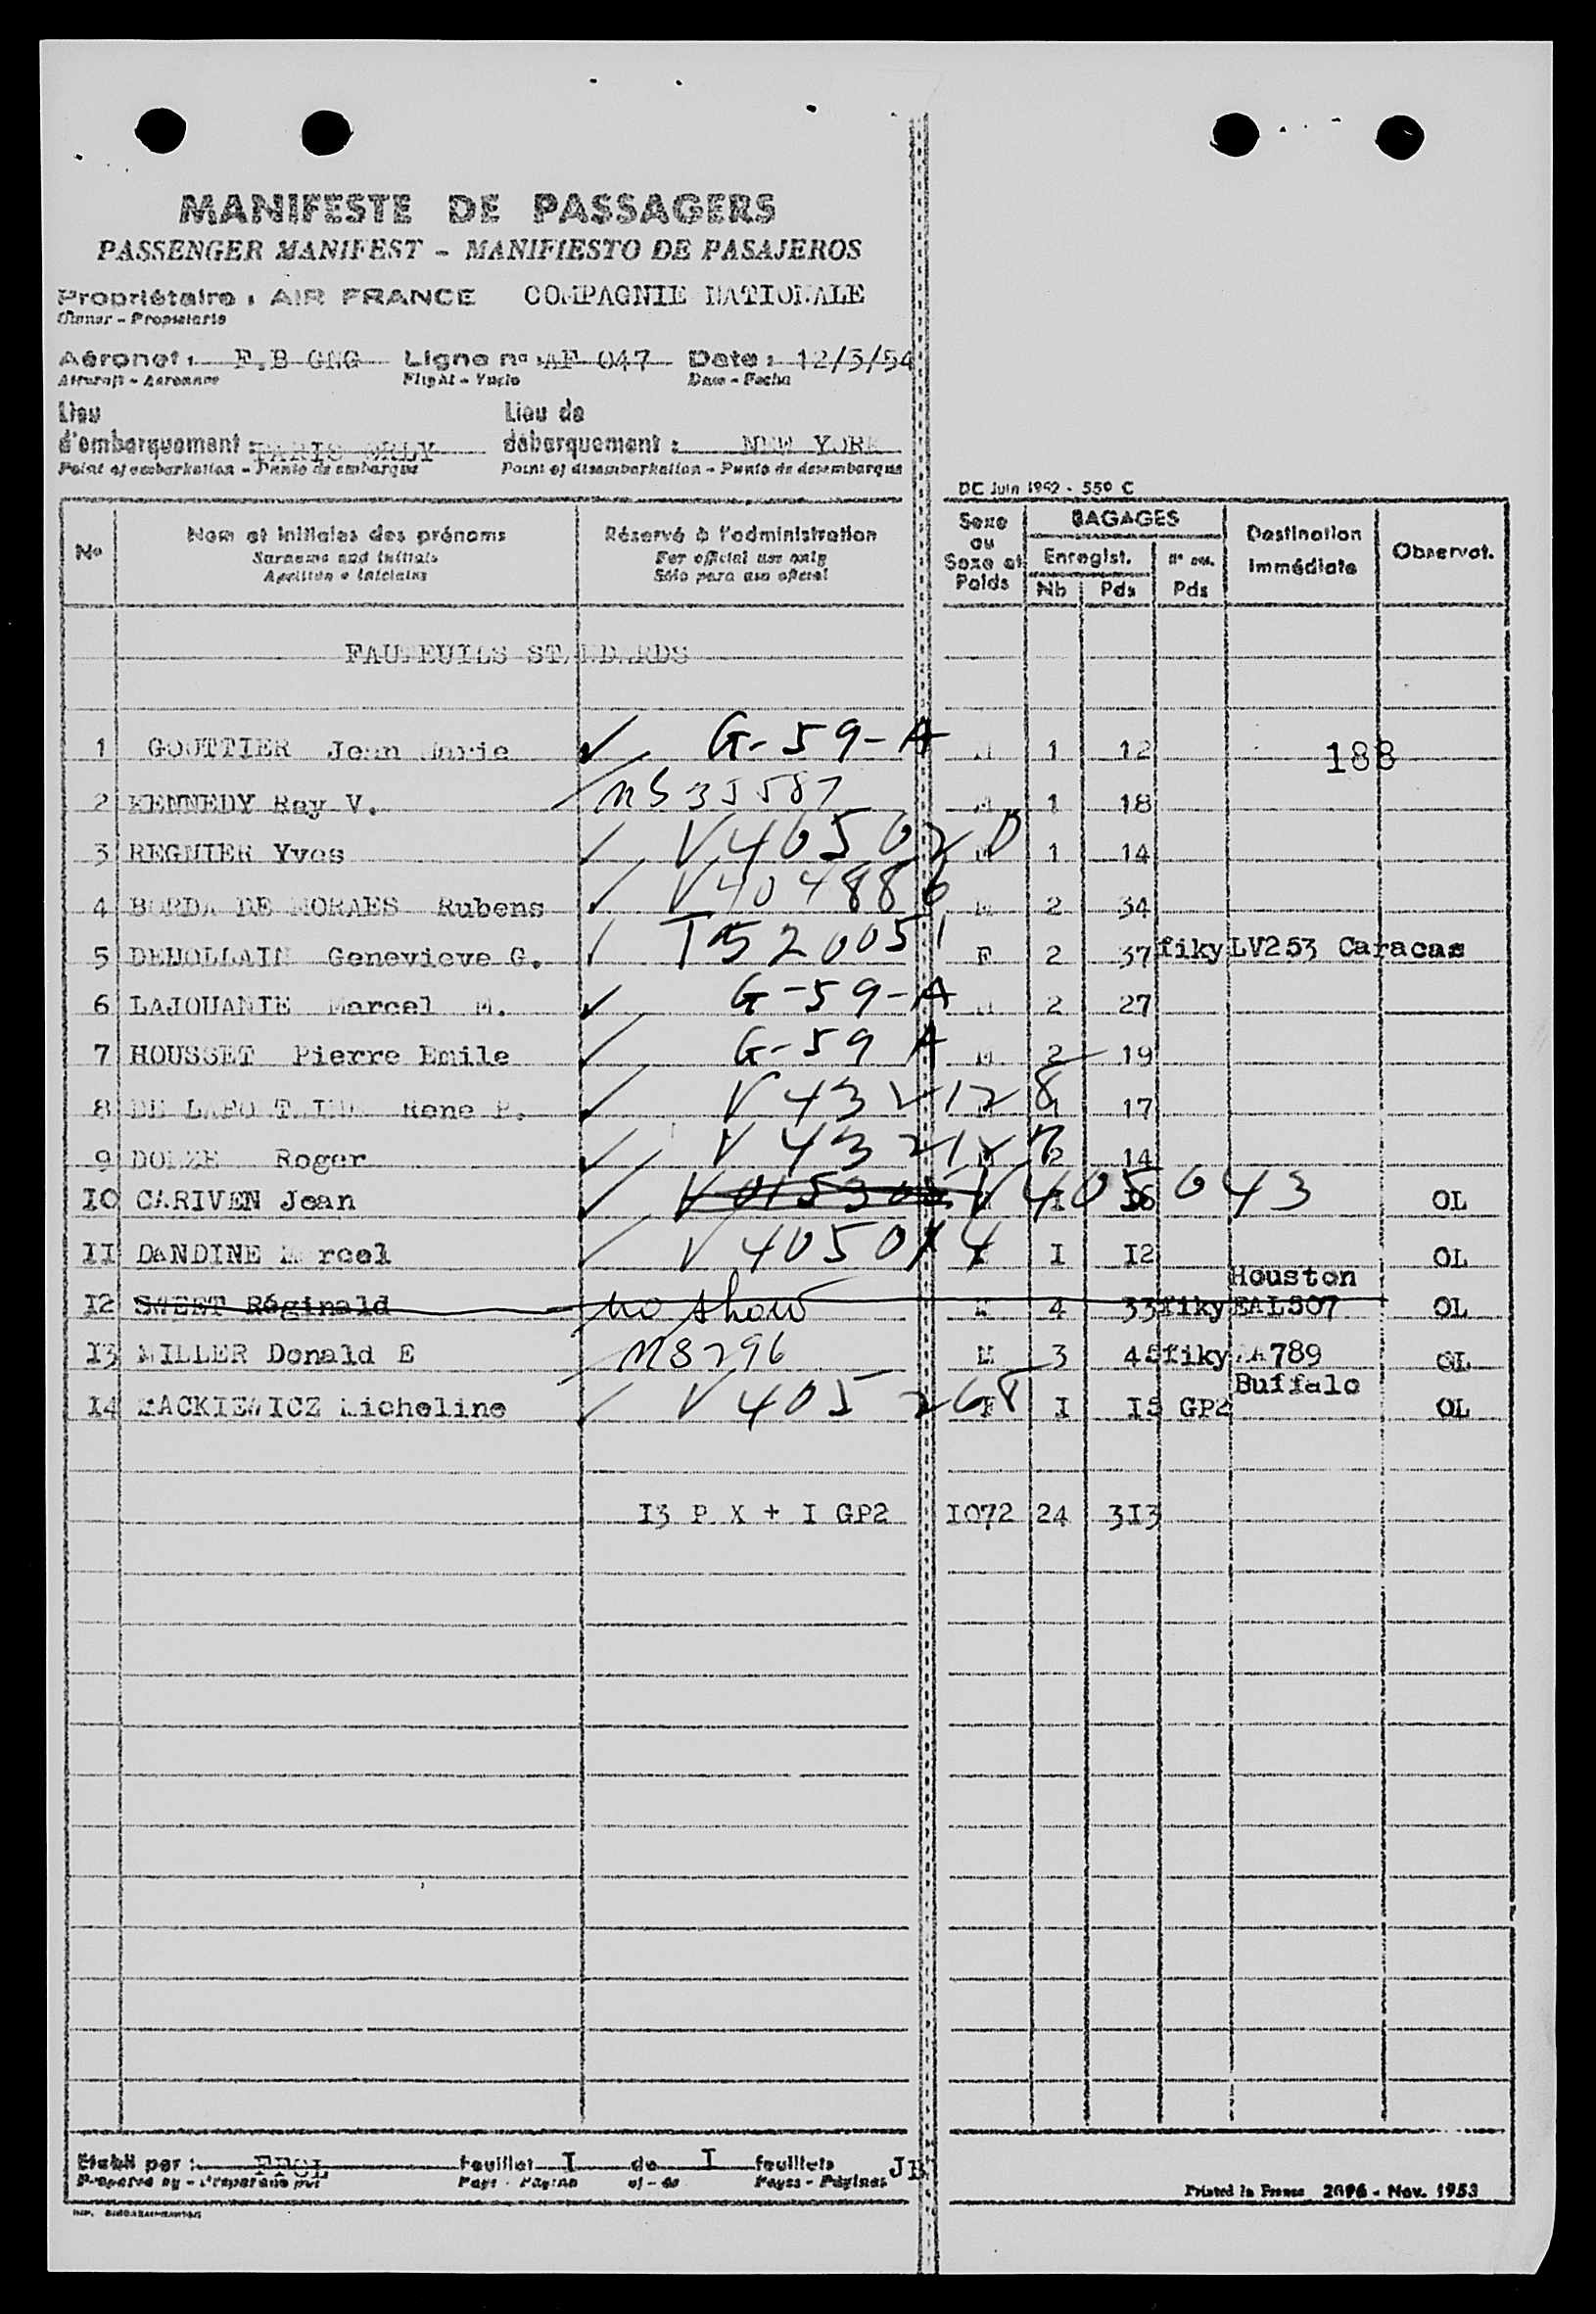 MANIFESTE DE PASSAGERS
PASSENGER MANIFEST - MANIFIESTO DE PASAJEROS
Propriétaire : AIR FRANCE COMPAGNIE NATIONALE
Owner - Propietario
Aéronef : F.B Ligne n° : AF 047 Date : 12/3/54
Aircraft - Aeronave Flight - Vuelo Date - Fecha
Lieu Lieu de
d'embarquement : PARIS ORLY débarquement : NEW YORK
Point of embarkation - Punto de embarque Point of disembarkation - Punto de desembarque
DC Juin 1952 - 550 C
N° Nom et initiales des prénoms Réservé à l'administration Sexe ou Sexe et Poids BAGAGES Destination immédiate Observat.
Surname and initials For official use only Enregist.
Apellido e iniciales Sólo para uso oficial Nb Pds Pds
FAUTEUILS STANDARDS
1 GOUTTIER Jean Marie ✓ G-59-A M 1 12 188
2 KENNEDY Ray V. M 1 18
3 REGNIER Yves ✓ M 1 14
4 BORBA DE MORAES Rubens ✓ V404886 M 2 34
5 DEHOLLAIN Genevieve G. F 2 37 fiky LV253 Caracas
6 LAJOUANIE Marcel M. ✓ G-59-A M 2 27
7 HOUSSET Pierre Emile ✓ G-59 A M 2 19
8 DE Rene P. ✓ V 432128 17
9 Roger ✓ V 432127 2 14
10 CARIVEN Jean ✓ V 405043 OL
11 DANDINE Marcel ✓ I I2 OL
Houston
12 SWEET Réginald no show M 4 33 fiky EAL507 OL
13 MILLER Donald E M8296 M 3 45 fiky AA789 OL
Buffalo
14 MACKIEWICZ Micheline ✓ V 405 268 F I I5 GP2 OL
I3 P X + I GP2 I072 24 3I3
Etabli par : feuillet I de I feuillets JB
Prepared by - Preparado por Page - Página of - de Pages - Páginas
Printed in France 2096 - Nov. 1953